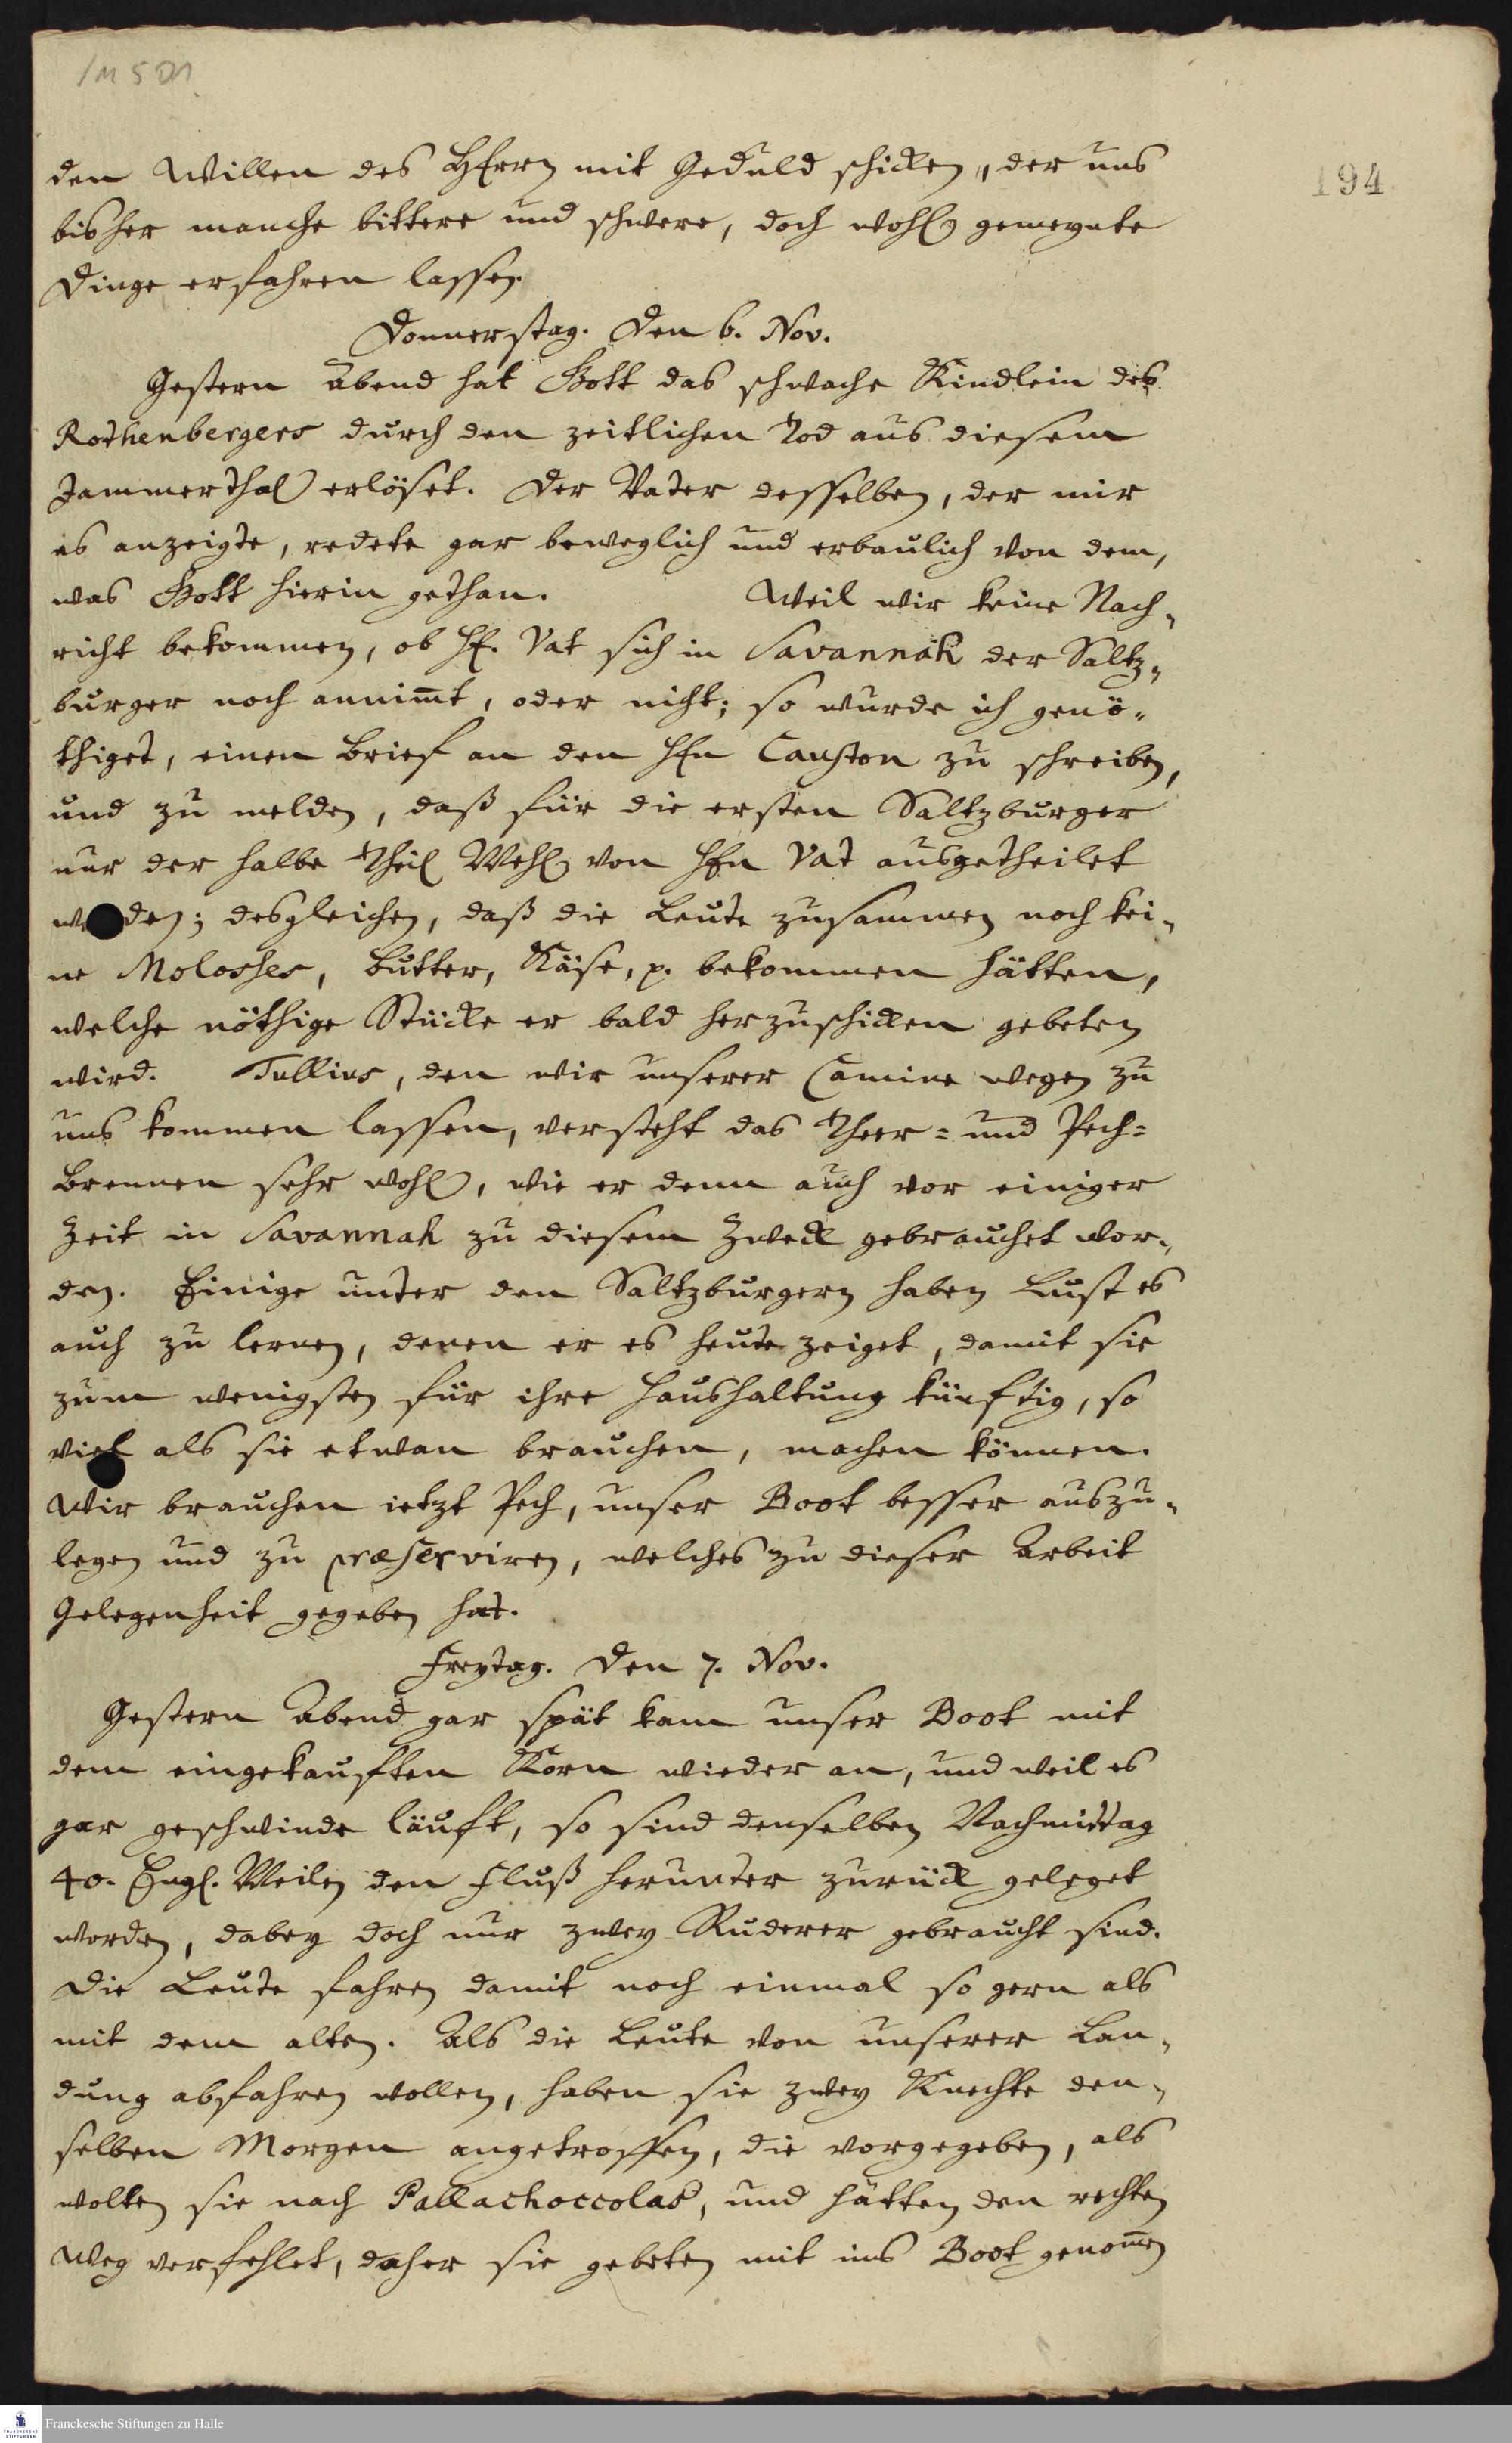 /M 5 D1
194
den Willen des HErrn mit Geduld schicken, der uns
bisher manche bittere und schwere, doch wohl gemeynte
Dinge erfahren lassen.
Donnerstag. Den 6. Nov.
Gestern Abend hat Gott das schwache Kindlein des
Rothenbergers durch den zeitlichen Tod aus diesem
Jammerthal erlöset. Der Vater desselben, der mir
es anzeigte, redete gar beweglich und erbaulich von dem,
was Gott hierin gethan. Weil wir keine Nach-
richt bekommen, ob Hr. Vat sich in Savannah der Saltz-
burger noch annim̄t, oder nicht; so wurde ich genö-
thiget, einen Brief an den Hrn Causton zu schreiben,
und zu melden, daß für die ersten Saltzburger
nur der halbe Theil Mehl von Hrn Vat ausgetheilet
den; desgleichen, daß die Leute zusammen noch kei-
ne Molosses, Butter, Käse, p. bekommen hätten,
welche nöthige Stücke er bald herzuschicken gebeten
wird. Tullius, den wir unserer Camine wegen zu
uns kommen lassen, versteht das Theer- und Pech-
Brennen sehr wohl, wie er denn auch vor einiger
Zeit in Savannah zu diesem Zweck gebrauchet wor-
den. Einige unter den Saltzburgern haben Lust es
auch zu lernen, denen er es heute zeiget, damit sie
zum wenigsten für ihre Haushaltung künftig, so
viel als sie etwan brauchen, machen können.
Wir brauchen ietzt Pech, unser Boot besser auszu-
legen und zu præserviren, welches zu dieser Arbeit
Gelegenheit gegeben hat.
Freytag. Den 7. Nov.
Gestern Abend gar spät kam unser Boot mit
dem eingekauften Korn wieder an, und weil es
gar geschwinde läuft, so sind denselben Nachmittag
40. Engl. Meilen den Fluß herunter zurück geleget
worden, dabey doch nur zwey Ruderer gebraucht sind.
Die Leute fahren damit noch einmal so gern als
mit dem alten. Als die Leute von unserer Lan-
dung abfahren wollen, haben sie zwey Knechte den-
selben Morgen angetroffen, die vorgegeben, als
wolten sie nach Pallachoccolas, und hätten den rechten
Weg verfehlet, daher sie gebeten mit ins Boot genom̄en
Franckesche Stiftungen zu Halle